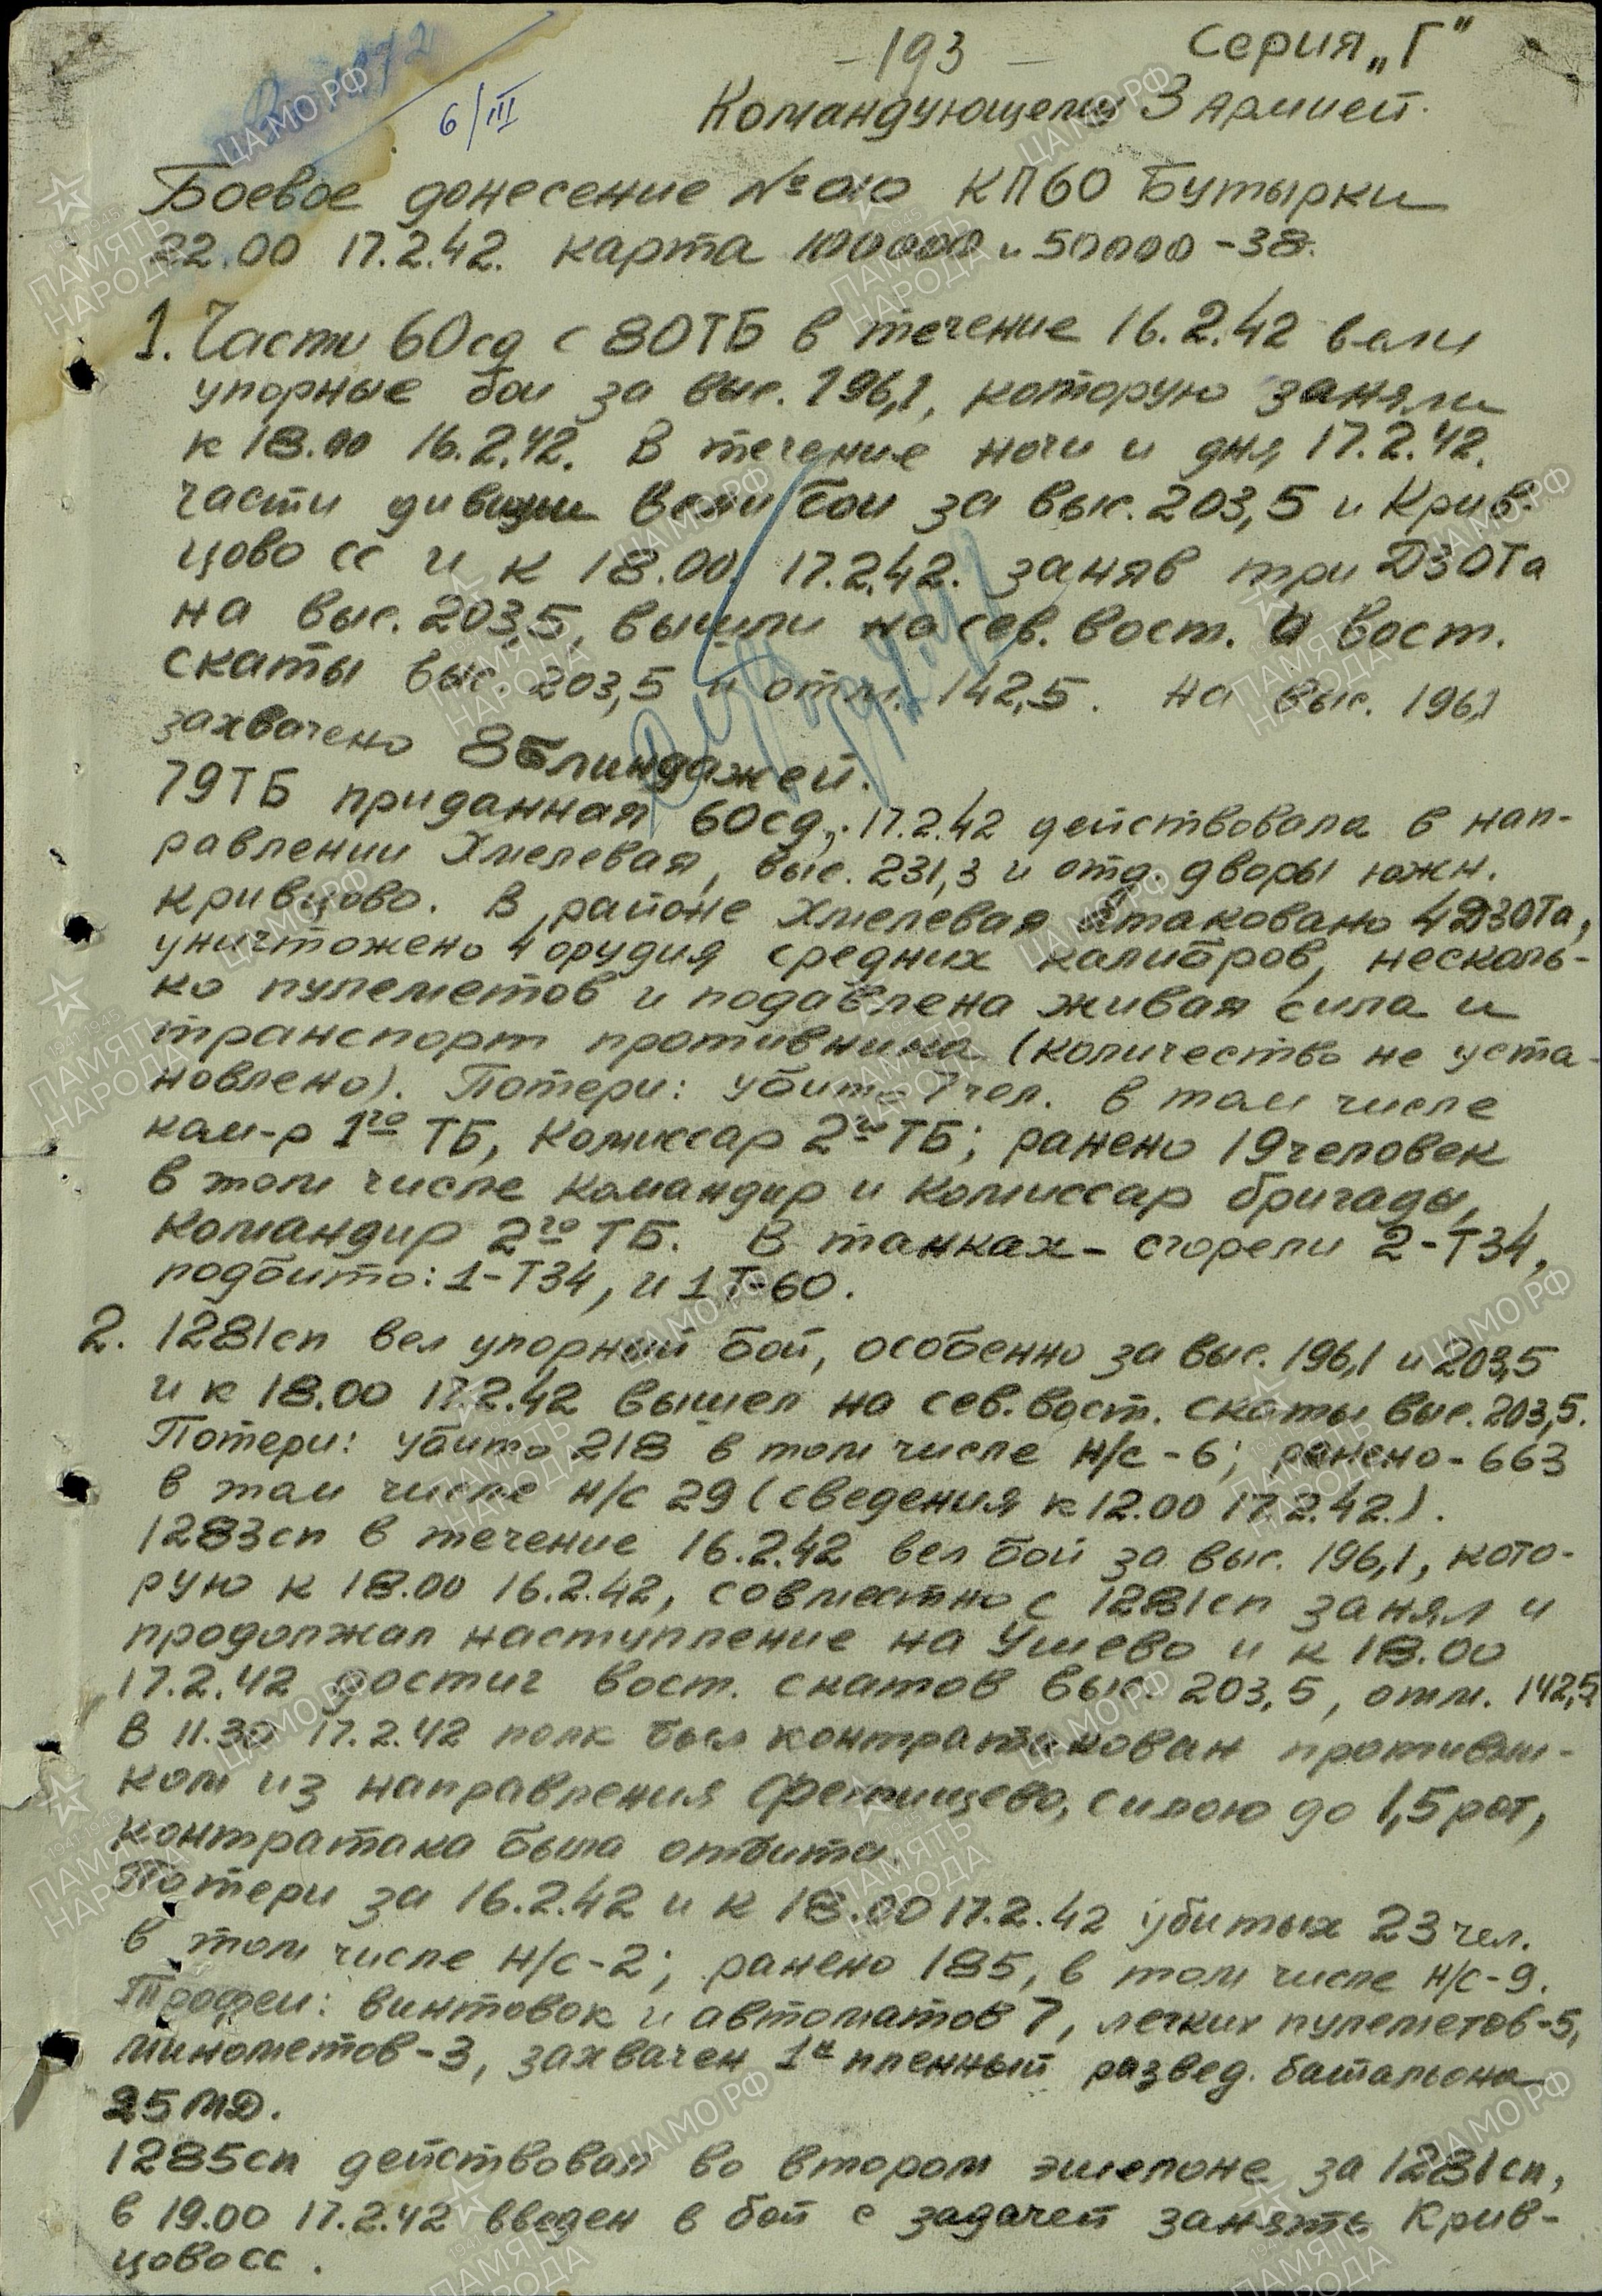 -193- Серия „Г"
6/III
Командующему 3 армией.
Боевое донесение № 010 КП 60 Бутырки
22.00 17.2.42. карта 100000 и 50000 -38.
1. Части 60сд с 80ТБ в течение 16.2.42 вели
упорные бои за выс. 196,1, которую заняли
к 18.00 16.2.42. В течение ночи и дня 17.2.42.
части дивизии вели бои за выс. 203,5 и Крив-
цово сс и к 18.00. 17.2.42. заняв три ДЗОТа
на выс. 203,5, вышли на сев. вост. и вост.
скаты выс. 203,5 и отм. 142,5. На выс. 196,1
захвачено 8 блиндажей.
79ТБ приданная 60сд, 17.2.42 действовала в нап-
равлении Хмелевая, выс. 231,3 и отд. дворы южн.
Кривцово. В районе Хмелевая атаковано 4 ДЗОТа,
уничтожено 4 орудия средних калибров, несколь-
ко пулеметов и подавлена живая сила и
транспорт противника (количество не уста-
новлено). Потери: убито 7 чел. в том числе
ком-р 1го ТБ, Комиссар 2го ТБ; ранено 19 человек
в том числе командир и комиссар бригады,
Командир 2го ТБ. В танках- сгорели 2-Т34,
подбито: 1-Т34, и 1 Т-60.
2. 1281сп вел упорный бой, особенно за выс. 196,1 и 203,5
и к 18.00 17.2.42 вышел на сев. вост. скаты выс. 203,5.
Потери: убито 218 в том числе н/с-6; ранено-663
в том числе н/с 29 (сведения к 12.00 17.2.42.).
1283сп в течение 16.2.42 вел бой за выс. 196,1, кото-
рую к 18.00 16.2.42, совместно с 1281сп занял и
продолжал наступление на Ушево и к 18.00
17.2.42 достиг вост. скатов выс. 203,5, отм. 142,5
В 11.30 17.2.42 полк был контратакован противни-
ком из направления Фетищево, силою до 1,5 рот,
контратака была отбита.
Потери за 16.2.42 и к 18.00 17.2.42 убитых 23 чел.
в том числе н/с-2; ранено 185, в том числе н/с-9.
Трофеи: винтовок и автоматов 7, легких пулеметов-5,
минометов-3, захвачен 1н пленный развед. батальона
25 МД.
1285сп действовал во втором эшелоне за 1281сп,
в 19.00 17.2.42 введен в бой с задачей занять Крив-
цово сс.